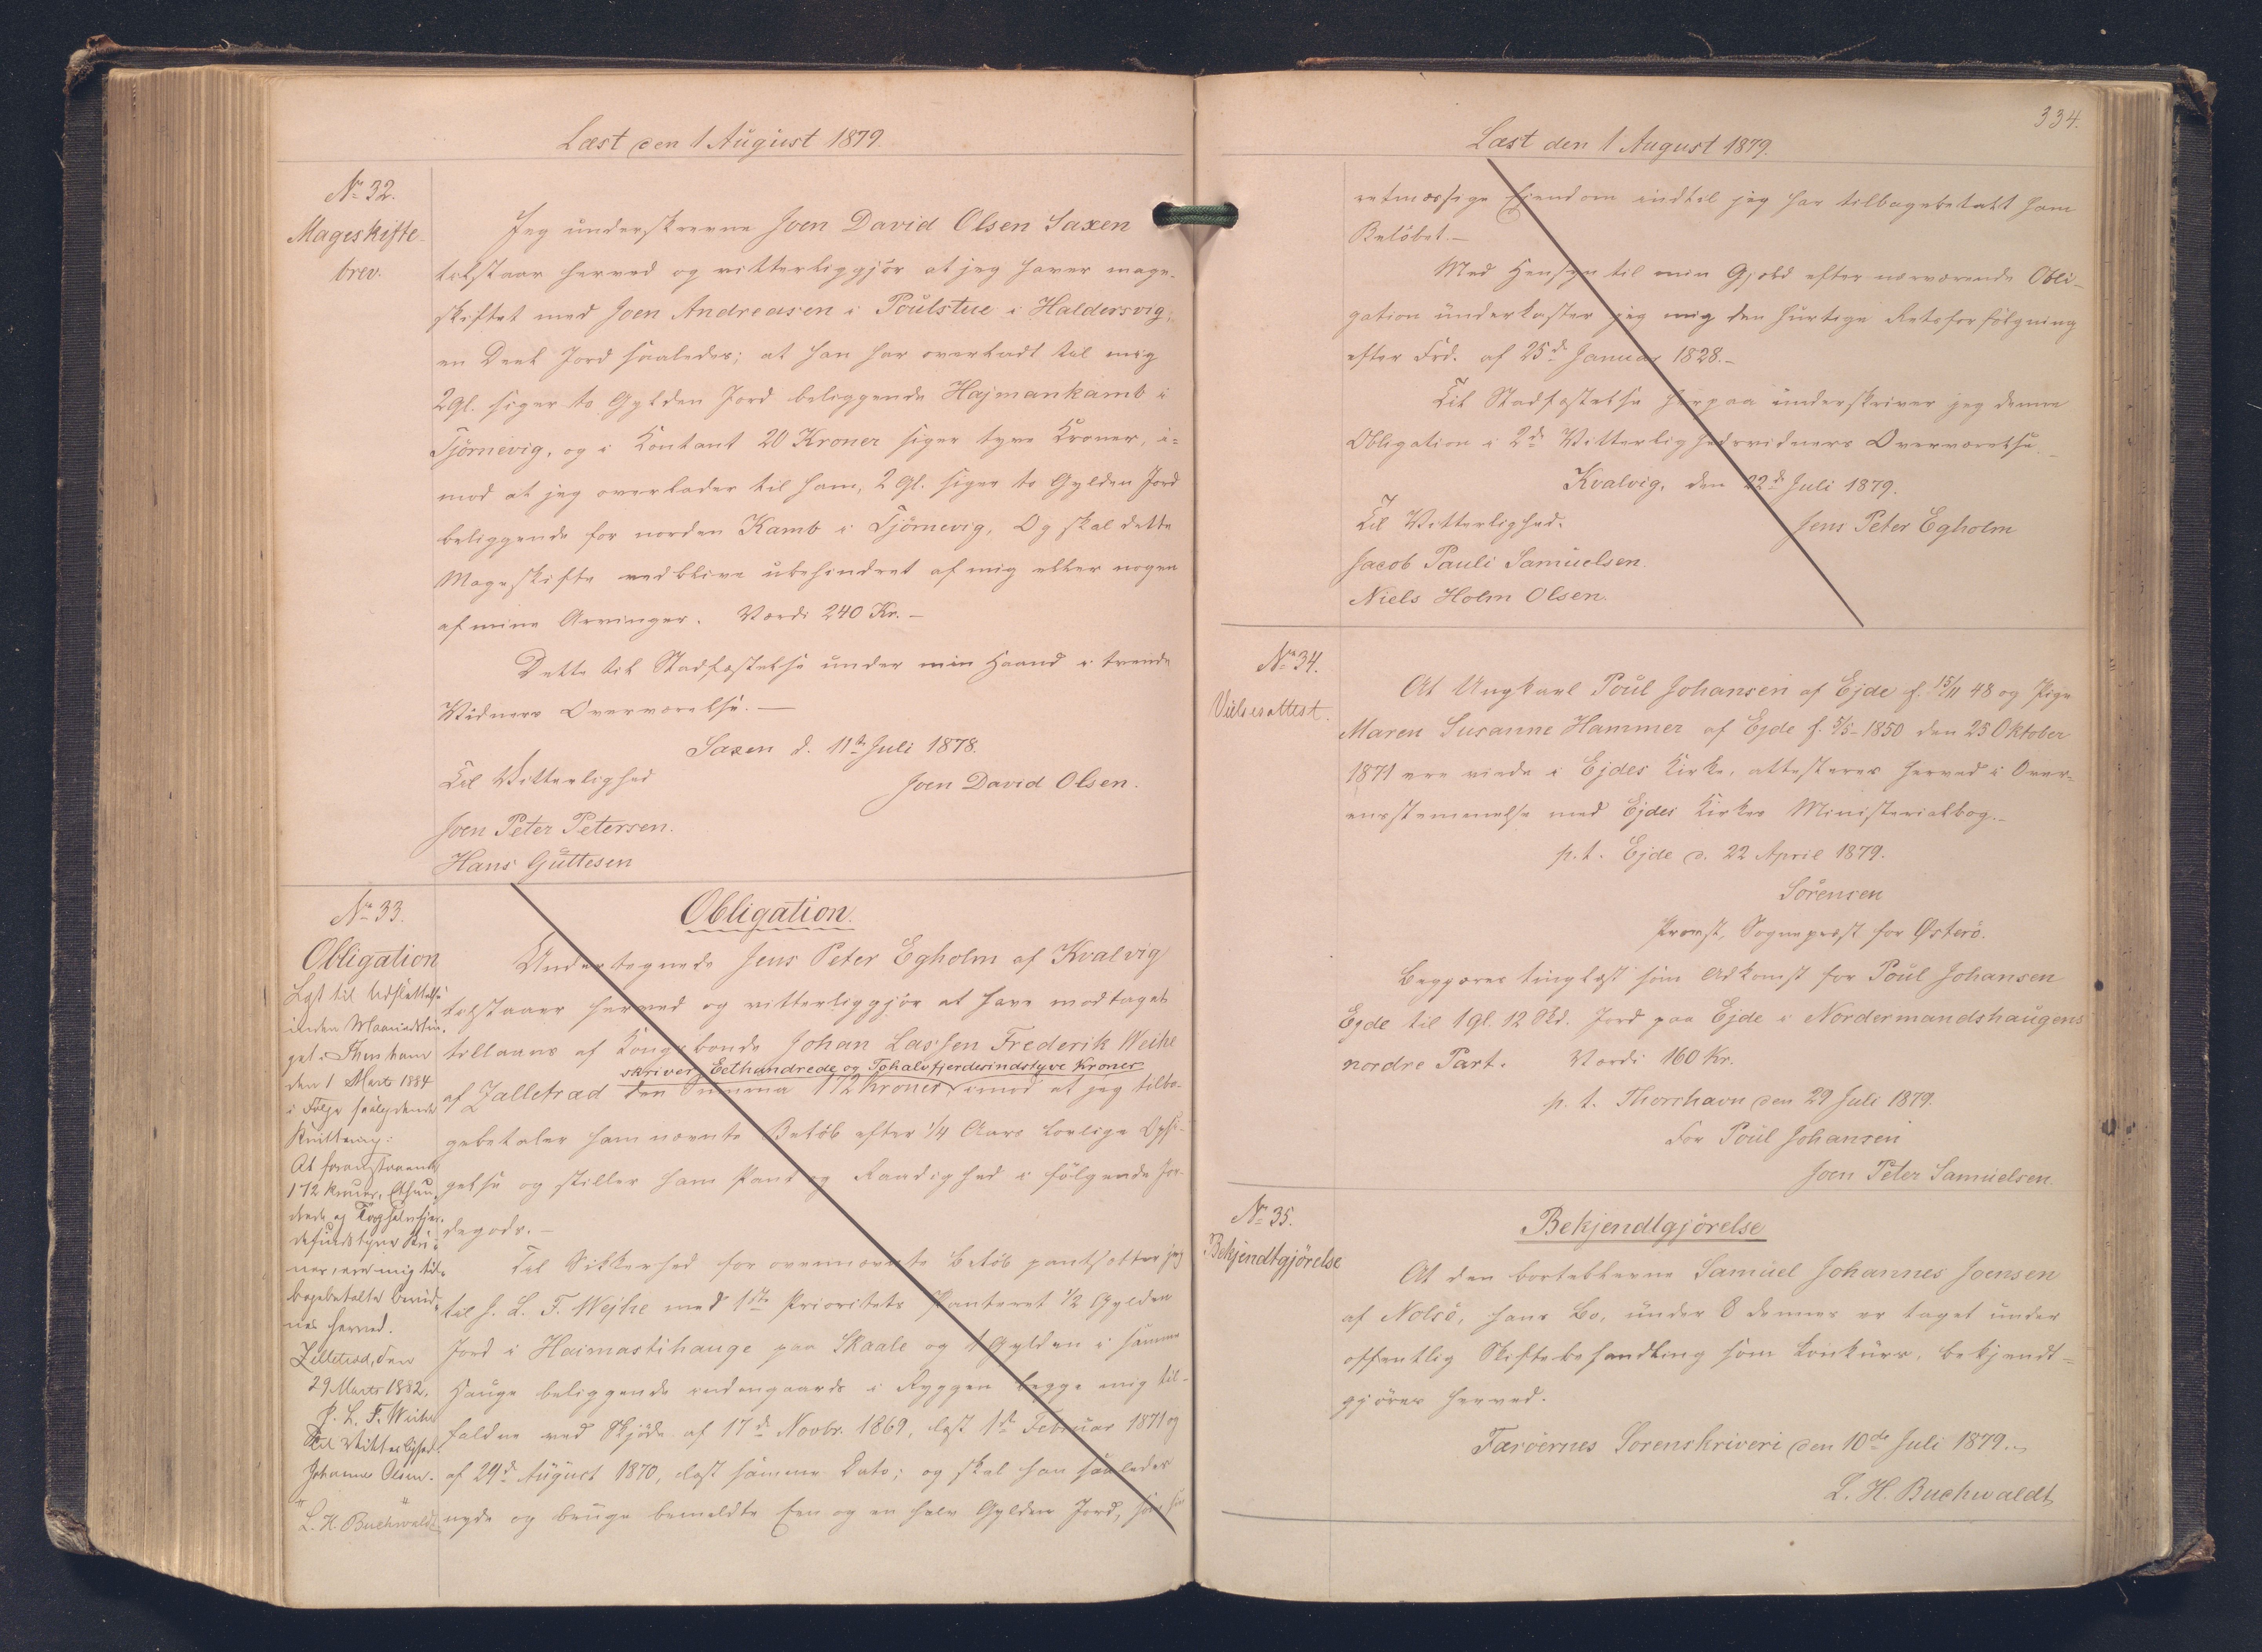 Læst den 1 August 1879.
No 32.
Mageskifte-
brev.
Jeg underskrevne Joen David Olsen Saxen
tilstaar herved og vitterliggjör at jeg haver mage-
skiftet med Joen Andreasen i Poulstue i Haldersvig,
en Deel Jord saaledes; at han har overladt til mig
2 Gl. siger to Gylden Jord beliggende Hajmankamb i
Tjörnevig, og i Kontant 20 Kroner siger tyve Kroner, i-
mod at jeg overlader til ham, 2 Gl. siger to Gylden Jord
beliggende for norden Kamb i Tjörnevig, Og skal dette
Mageskifte vedblive ubehindret af mig eller nogen
af mine Arvinger. Værdi 240 Kr. —
Dette til Stadfæstelse under min Haand i tvende
Vidners Overværelse. —
Saxen d. 11te Juli 1878.
Til Vitterlighed
Joen David Olsen.
Joen Peter Petersen.
Hans Guttesen
No 33.
Obligation
Læst til Udslettelse
inden Maanedstin-
get i Thorshavn
den 1 Marts 1884
i Følge saalydende
Kvittering:
At foranstaaende
172 Kroner, Ethun-
drede og Toghalvfjer-
desindstyve Kro-
ner, ere mig til-
bagebetalte bevid-
nes herved.
Zelletræd, den
29 Marts 1882.
J. L. F. Weihe
Til Vitterlighed.
Johannes Olsen.
L. H. Buchwaldt
Obligation.
Undertegnede Jens Peter Egholm af Kvalvig
tilstaaer herved og vitterliggjör at have modtaget
tillaans af Kongsbonde Johan Lassen Frederik Weihe
skriver Eethundrede og Tohalvfjerdesindstyve Kroner
af Zalletræd den Summa 172 Kroner imod at jeg tilba-
gebetaler ham nævnte Belöb efter 1/4 Aars lovlige Opsi-
gelse og stiller ham Pant og Raadighed i fölgende Jor-
degods. —
Til Sikkerhed for ovennævnte Belöb pantsetter jeg
til J. L. F. Wejhe med 1ste Prioritets Panteret 1/2 Gylden
Jord i Haimastihauge paa Skaale og 1 Gylden i samme
Hauge beliggende indengaards i Ryggen begge mig til-
faldne ved Skjöde af 17de Novbr. 1869, læst 1ste Februar 1871 og
af 24de August 1870, læst samme Dato; og skal han saaledes
nyde og bruge bemeldte Een og en halv Gylden Jord, som sin
334.
Læst den 1 August 1879.
retmæssige Eiendom indtil jeg har tilbagebetalt ham
Belöbet. —
Med Hensyn til min Gjæld efter nærværende Obli-
gation underkaster jeg mig den hurtige Retsforfölgning
efter Frd. af 25de Januar 1828. —
Til Stadfæstelse herpaa underskriver jeg denne
Obligation i 2de Vitterlighedsvidners Overværelse. —
Kvalvig, den 22de Juli 1879.
Til Vitterlighed.
Jens Peter Egholm
Jacob Pauli Samuelsen.
Niels Holm Olsen.
No 34.
Vielsesattest.
At Ungkarl Poul Johansen af Ejde f. 15/11 48 og Pige
Maren Susanne Hammer af Ejde f. 5/5 - 1850 den 25 Oktober
1871 ere viede i Ejdes Kirke, attesteres herved i Over-
ensstemmelse med Ejdes Kirkes Ministerialbog. —
p.t. Ejde d. 22 April 1879.
Sörensen
Provst, Sognepræst for Østerö.
Begjæres tinglæst som Adkomst for Poul Johansen
Ejde til 1 gl. 12 Skd. Jord paa Ejde i Nordermandshaugens
nordre Part. Værdi 160 Kr.
p. t. Thorshavn den 29 Juli 1879.
For Poul Johansen
Joen Peter Samuelsen.
No 35.
Bekjendtgjörelse
Bekjendtgjörelse
At den borteblevne Samuel Johannes Joensen
af Nolsö, hans Bo, under 8 dennes er taget under
offentlig Skiftebehandling som Konkurs, bekjendt-
gjöres herved.
Færöernes Sorenskriveri den 10de Juli 1879.
L. H. Buchwaldt